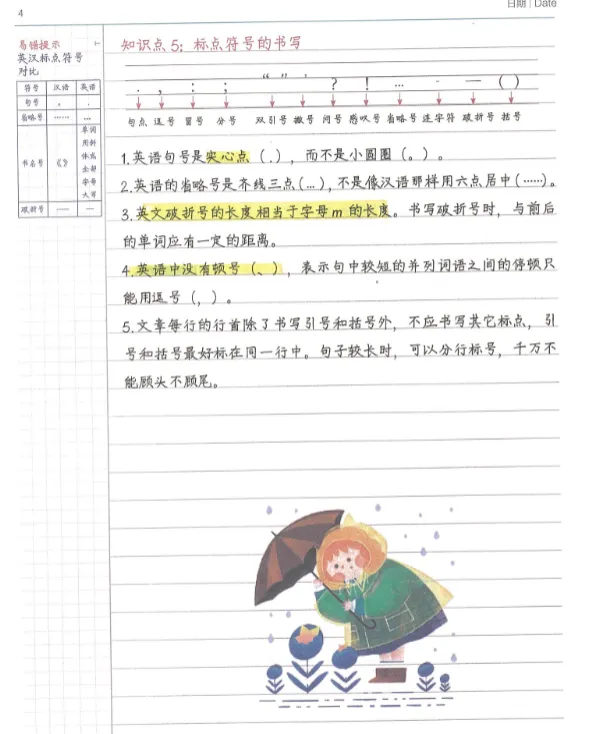 4
日期 | Date
易错提示
英汉标点符号
对比
符号 汉语 英语
句号 。 .
省略号 …… …
书名号 《》 单词
用斜
体或
全部
字母
大写
破折号 —— —
知识点5：标点符号的书写
. , : ; “ ” ' ? ! … - — ( )
句点 逗号 冒号 分号 双引号 撇号 问号 感叹号 省略号 连字符 破折号 括号
1.英语句号是实心点（.），而不是小圆圈（。）。
2.英语的省略号是齐线三点(…),不是像汉语那样用六点居中(……)。
3.英文破折号的长度相当于字母m的长度。书写破折号时，与前后
的单词应有一定的距离。
4.英语中没有顿号（、），表示句中较短的并列词语之间的停顿只
能用逗号（,）。
5.文章每行的行首除了书写引号和括号外，不应书写其它标点，引
号和括号最好标在同一行中。句子较长时，可以分行标号，千万不
能顾头不顾尾。